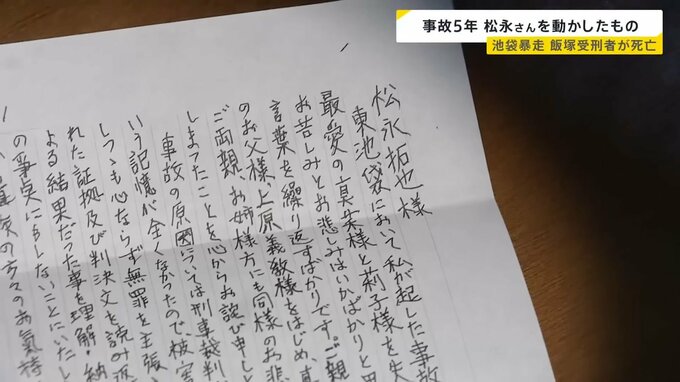 事故5年 松永さんを動かしたもの
池袋暴走 飯塚受刑者が死亡
松永拓也様
東池袋において私が起した事故
最愛の真菜様と莉子様を失
お苦しみとお悲しみはいかばかりと思
言葉を繰り返すばかりです。ご親
のお父様、上原義教様をはじめ、真
ご両親、お姉様方にも同様のお悲
しまったことを心からお詫び申し
事故の原因については刑事裁判
いう記憶が全くなかったので被害
しつゝも心ならず無罪を主張
れた証拠及び判決文を読み返
よる結果だった事を理解・納
の争点にもしないことにいたし
族の方々のお気持